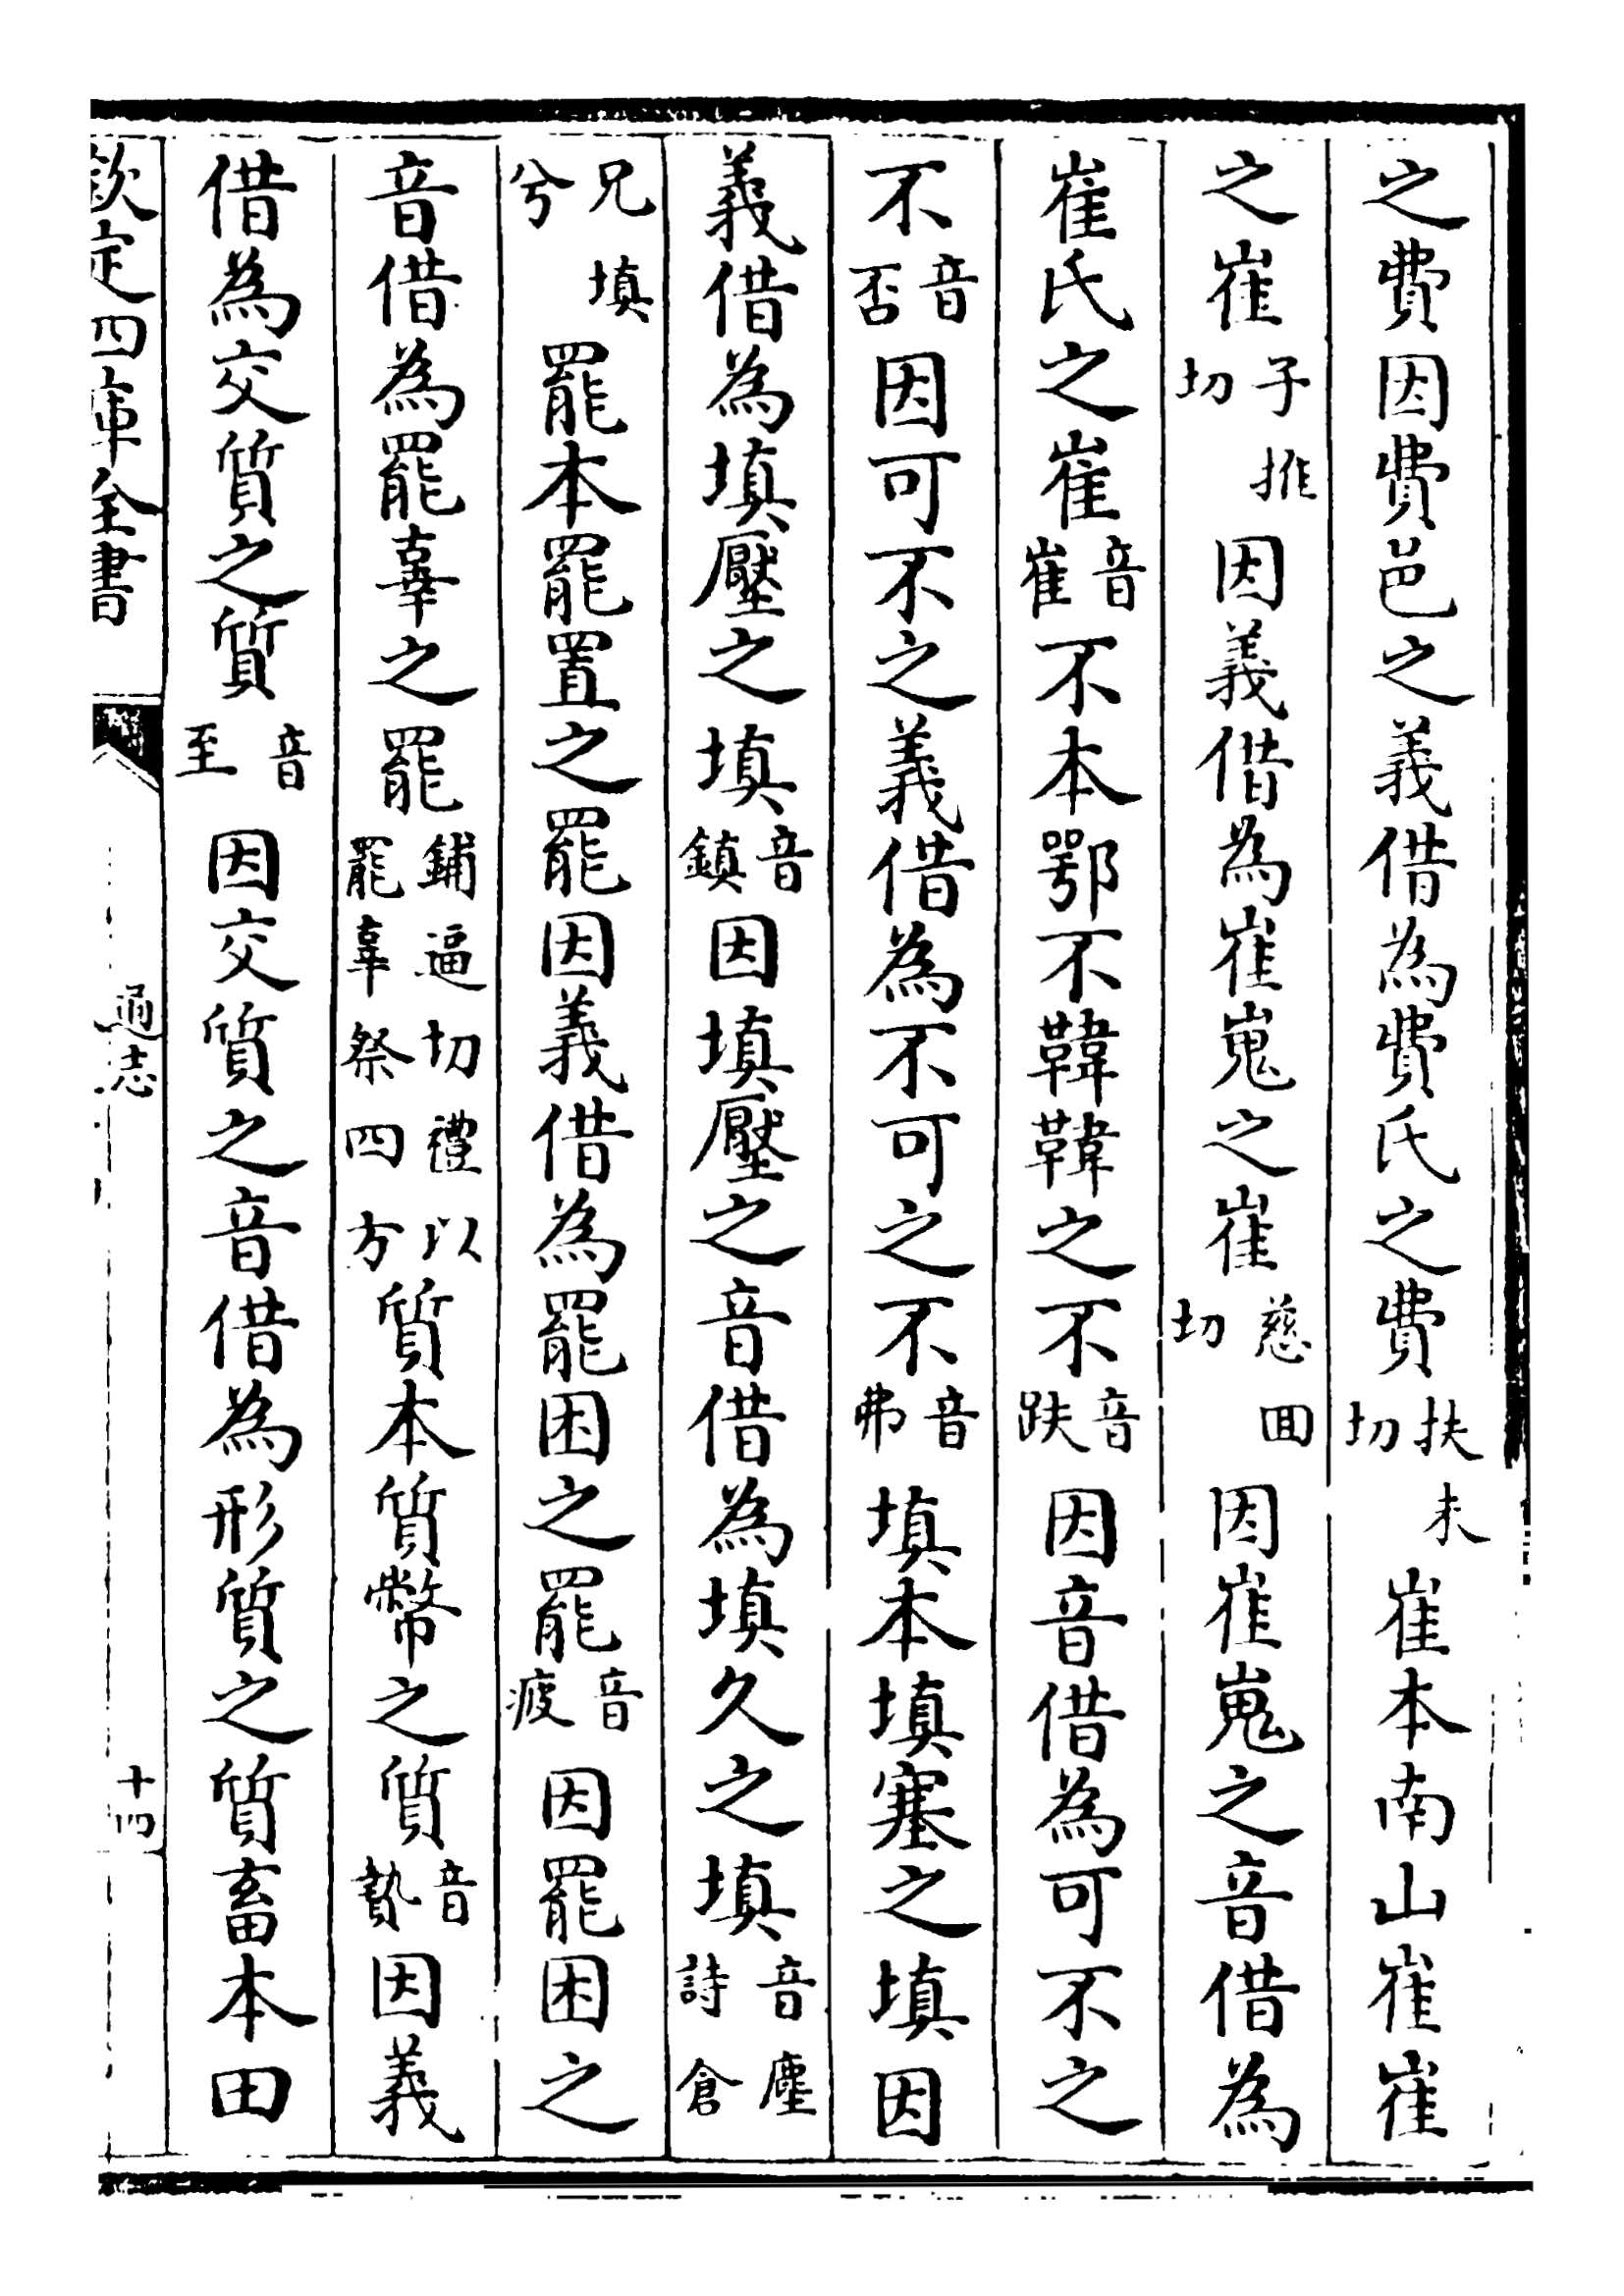 之費因費邑之義借為費氏之費扶未切崔本南山崔崔
之崔子推切因義借為崔嵬之崔慈囬切因崔嵬之音借為
崔氏之崔音崔不本鄂不韡韡之不音趺因音借為可不之
不音否因可不之義借為不可之不音弗填本填塞之填因
義借為填壓之填音鎮因填壓之音借為填久之填音塵詩倉
兄填兮罷本罷置之罷因義借為罷困之罷音疲因罷困之
音借為罷辜之罷鋪逼切禮以罷辜祭四方質本質幣之質音贄因義
借為交質之質音至因交質之音借為形質之質畜本田
欽定四庫全書
通志
十四